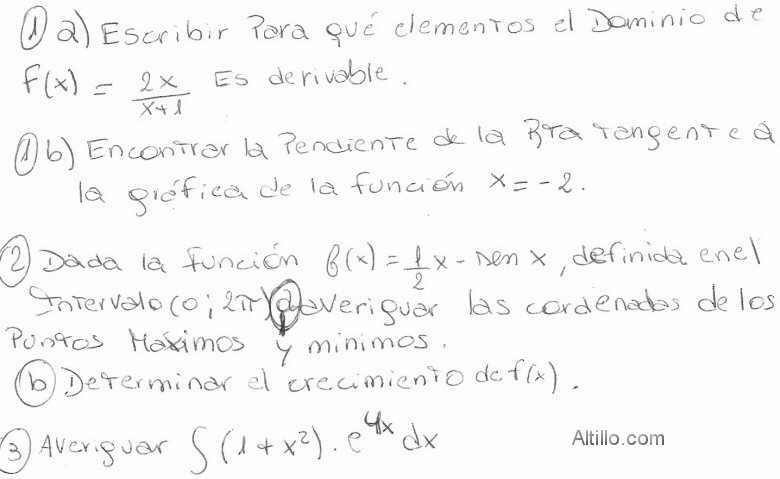 ① a) Escribir Para qué elementos el Dominio de
f(x) = 2x/x+1 Es derivable.
① b) Encontrar la Pendiente de la Rta tangente a
la gráfica de la función x = -2.
② Dada la función f(x) = 1/2 x - sen x, definida en el
Intervalo (0; 2π) ⓐ averiguar las cordenadas de los
Puntos Máximos y mínimos.
ⓑ Determinar el crecimiento de f(x).
③ Averiguar ∫(1+x²).e^4x dx
Altillo.com